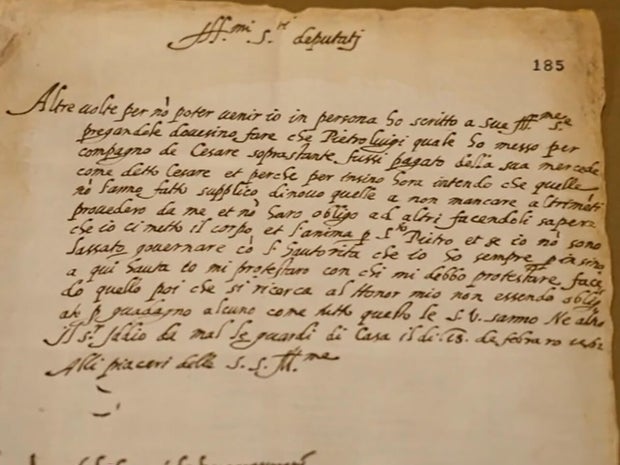 Ill.mi S.ri deputatj
185
Altre volte per nō poter venir io in persona ho scritto a sue Ill.me S.e
pregandole dovesino fare che Pietro luigi quale ho messo per
compagno de Cesare soprastante fussi pagato della sua mercede
come detto Cesare et perche per insino hora intendo che quelle
nō hanno fatto supplico dinovo quelle a non mancare altrimēti
provedero da me et nō haro obligo ad altri facendoli sapere
che io ci metto il corpo et l'anima p S.to Pietro et se io nō sono
lassato governare cō l hautorita che io ho sempre p insino
a qui hauta io mi protestaro con chi mi debbo protestare facē
do quello poi che si ricerca al Honor mio non essendo oblig
ato p guadagno alcuno come tutto questo le S.V. sanno Ne altro
il S.r Idio da mal le guardi di Casa il di .13. de febraro
Alli piaceri delle S. S. Ill.me